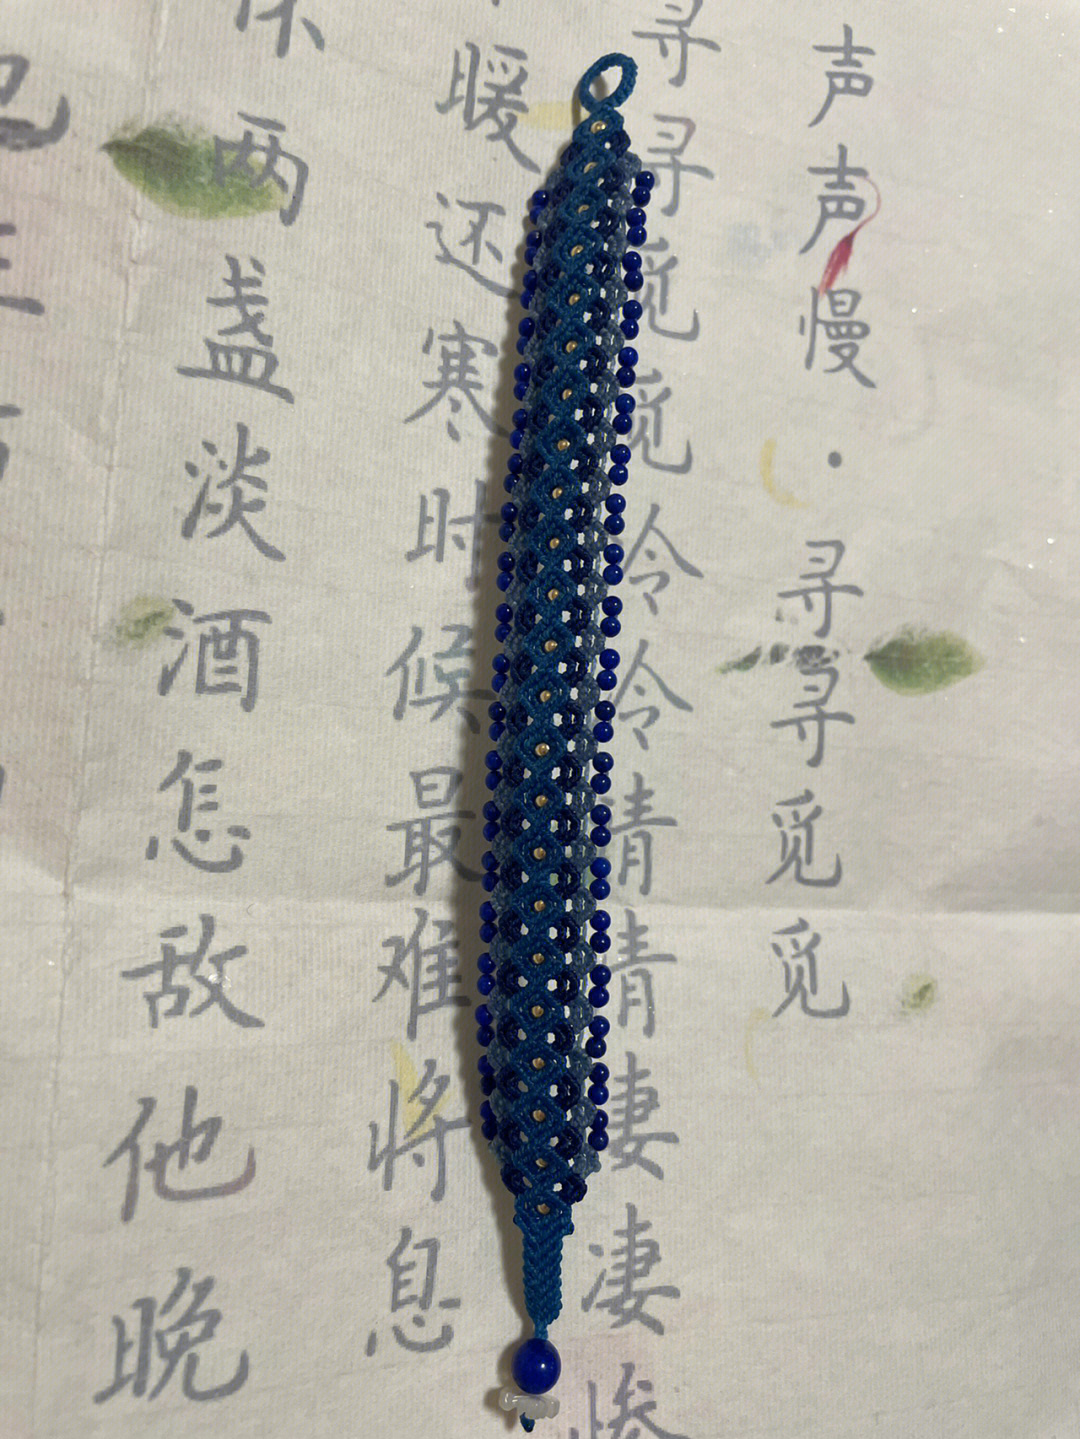 声声慢·寻寻觅觅
寻寻觅觅冷冷清清凄凄惨
暖还寒时候最难将息
杯两盏淡酒怎敌他晚